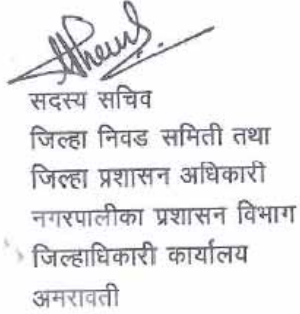 सदस्य सचिव
जिल्हा निवड समिती तथा
जिल्हा प्रशासन अधिकारी
नगरपालीका प्रशासन विभाग
जिल्हाधिकारी कार्यालय
अमरावती